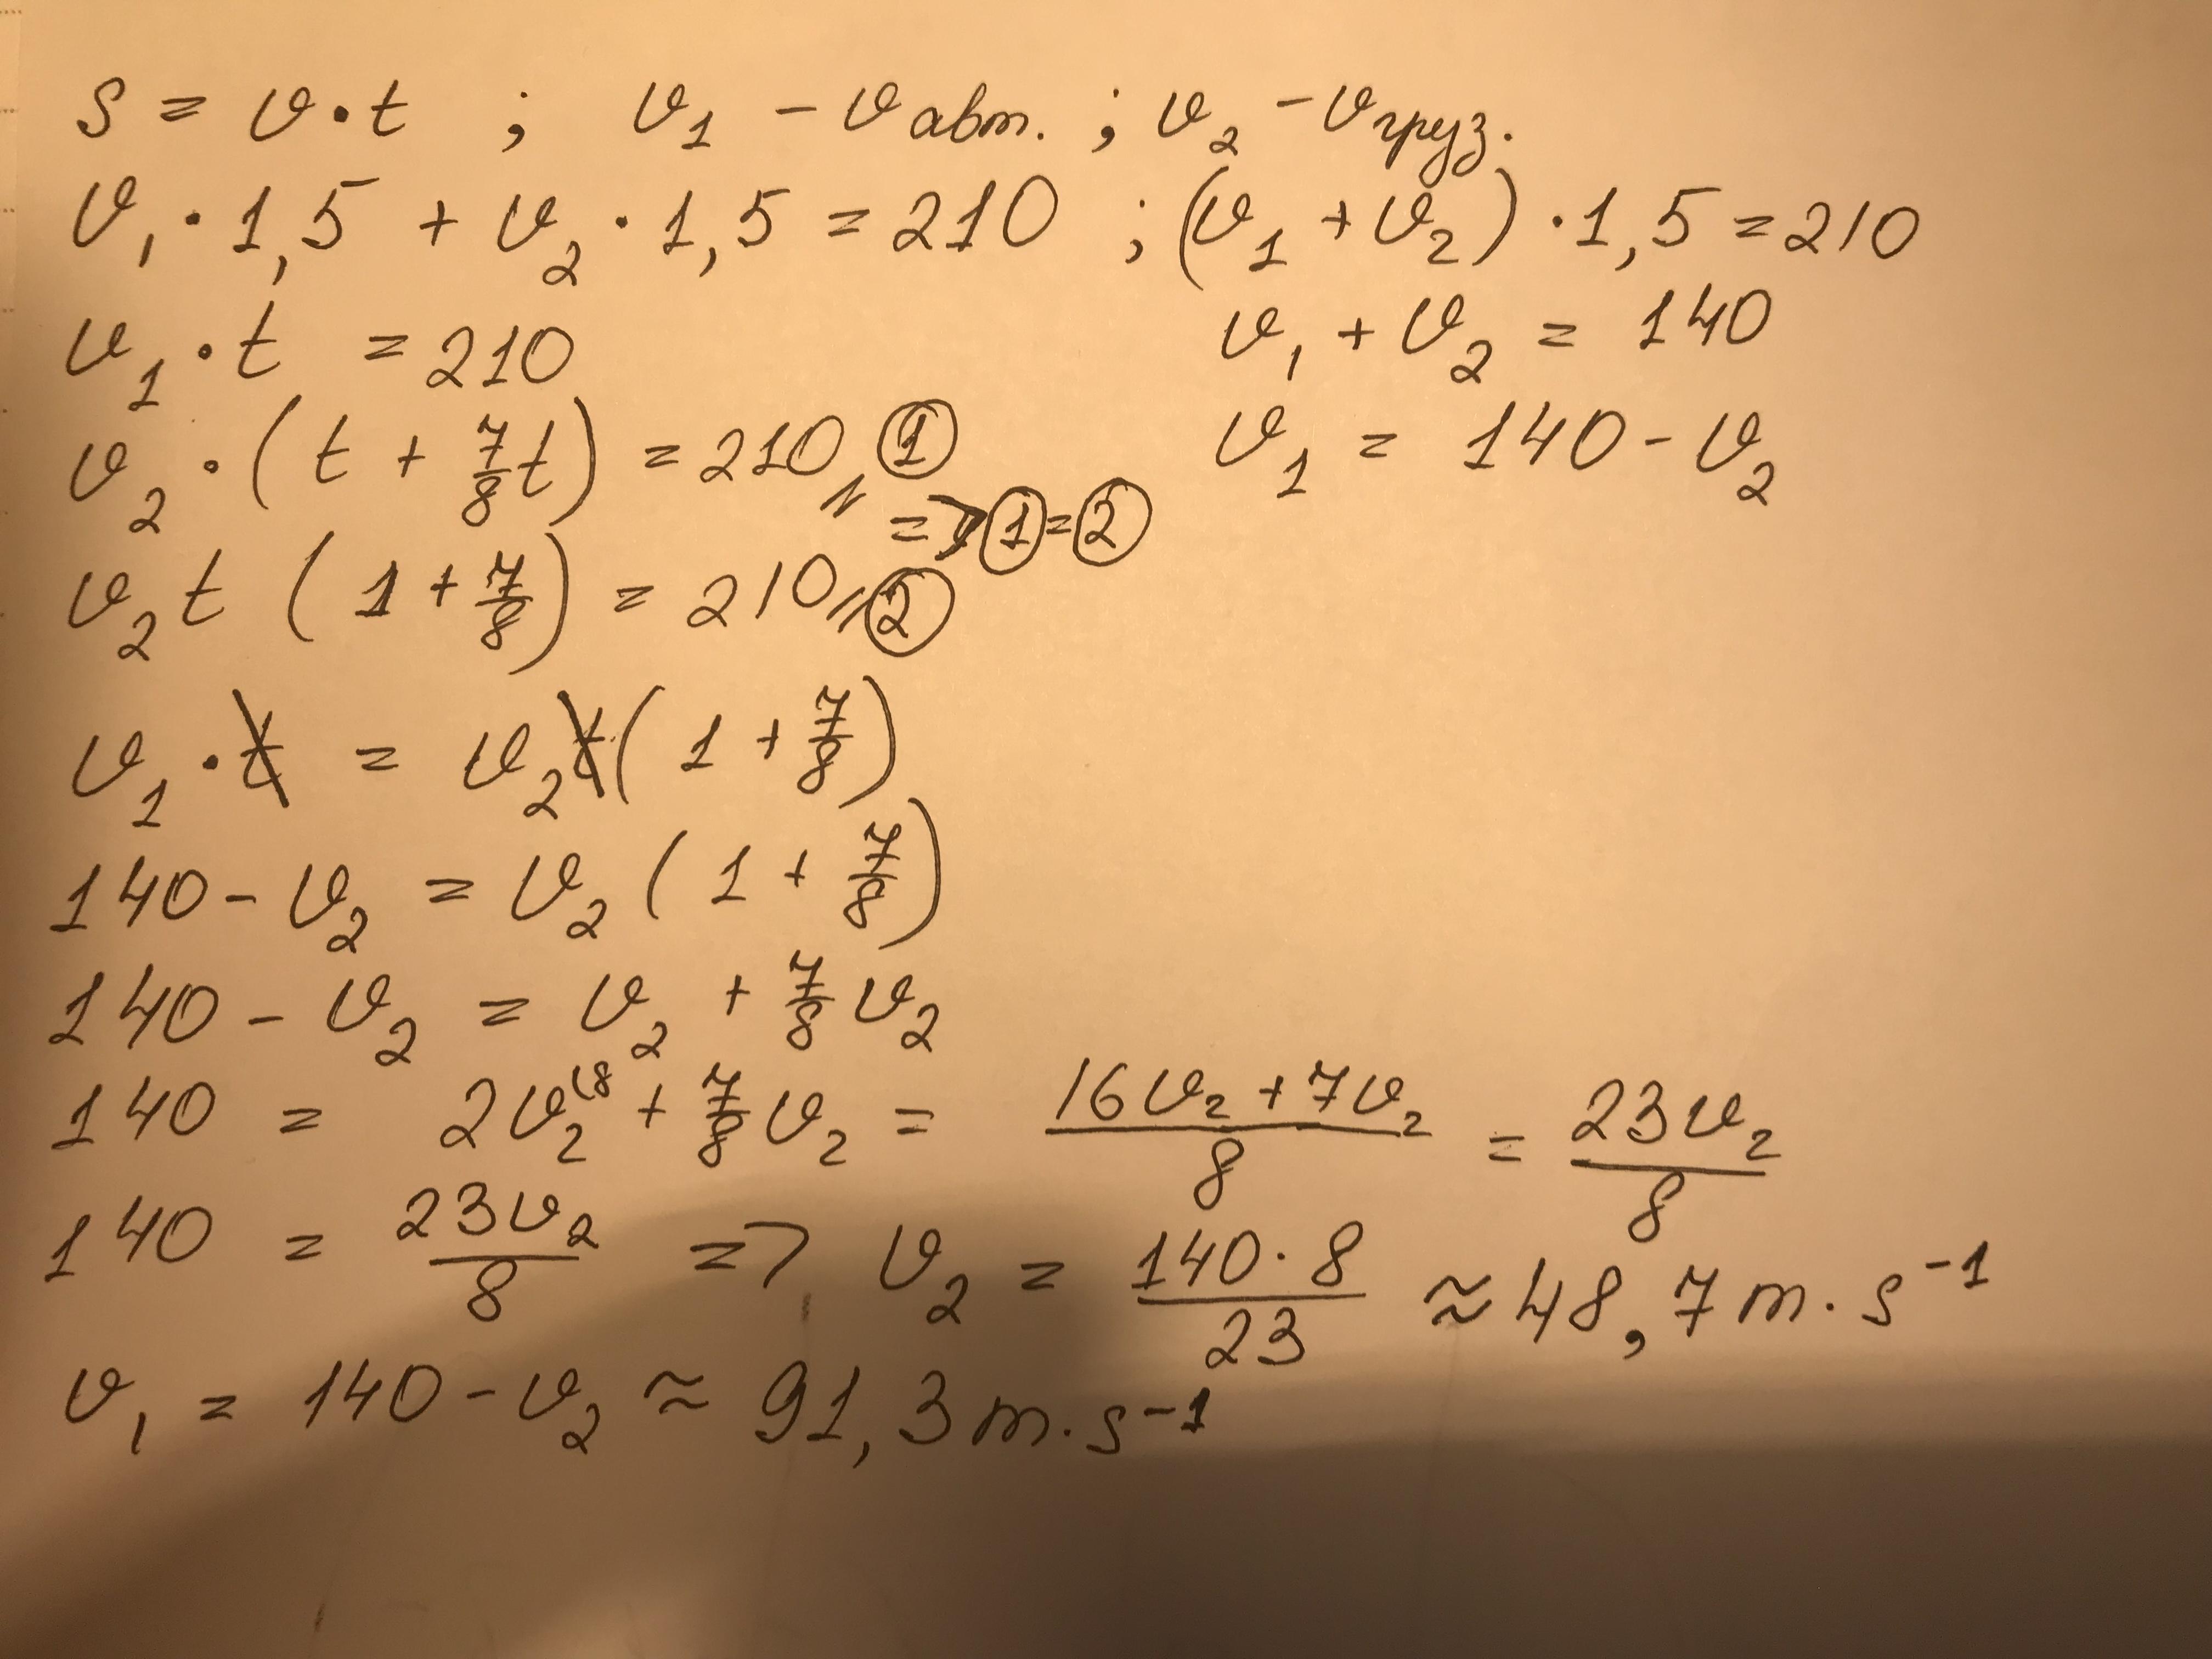 S = v·t ; v₁ - v авт. ; v₂ - v груз.
v₁·1,5 + v₂·1,5 = 210 ; (v₁ + v₂)·1,5 = 210
v₁·t = 210
v₁ + v₂ = 140
v₂·(t + 7/8 t) = 210 ①
v₁ = 140 - v₂
=> ① = ②
v₂ t (1 + 7/8) = 210 ②
v₁·t = v₂ t (1 + 7/8)
140 - v₂ = v₂ (1 + 7/8)
140 - v₂ = v₂ + 7/8 v₂
140 = 2v₂⁽⁸ + 7/8 v₂ = (16v₂ + 7v₂)/8 = 23v₂/8
140 = 23v₂/8 => v₂ = 140·8/23 ≈ 48,7 m·s⁻¹
v₁ = 140 - v₂ ≈ 91,3 m·s⁻¹